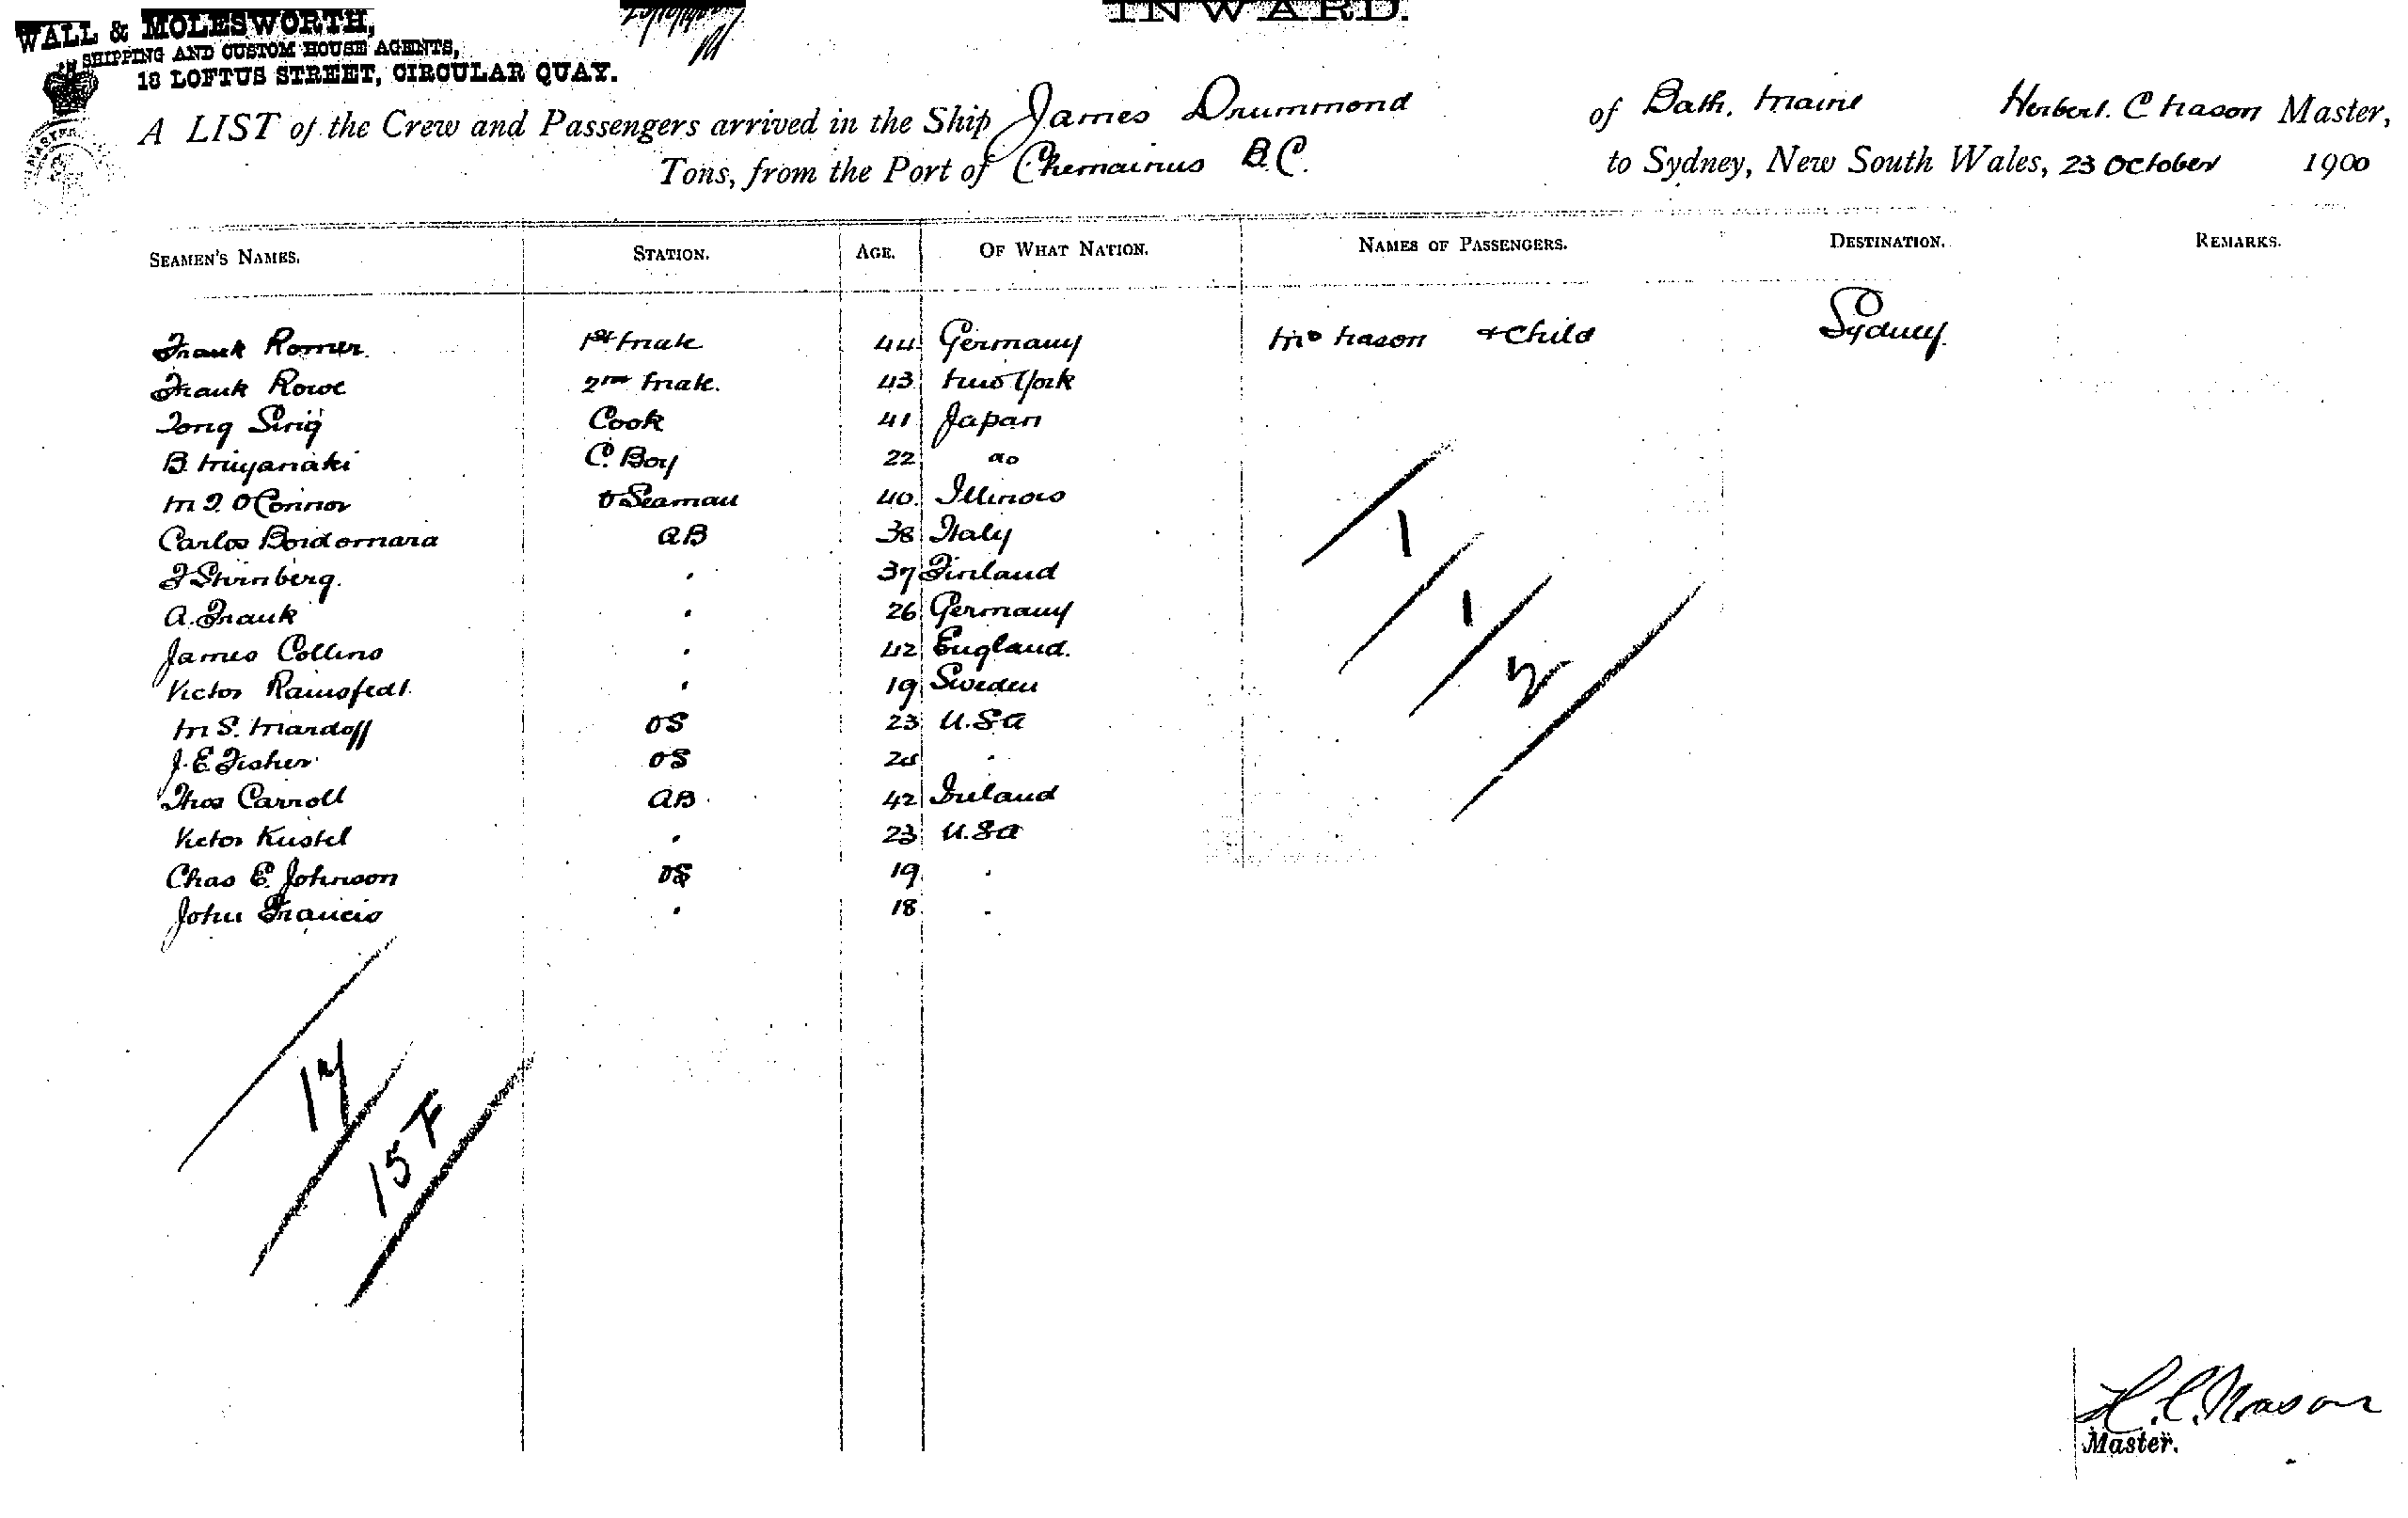 INWARD.
WALL & MOLESWORTH,
SHIPPING AND CUSTOM HOUSE AGENTS,
18 LOFTUS STREET, CIRCULAR QUAY.
A LIST of the Crew and Passengers arrived in the Ship James Drummond of Bath, Maine Herbert. C Nason Master,
Tons, from the Port of Chemainus B.C. to Sydney, New South Wales, 23 October 1900
SEAMEN'S NAMES. STATION. AGE. OF WHAT NATION. NAMES OF PASSENGERS. DESTINATION. REMARKS.
Frank Romer. 1st Mate 44 Germany Mrs Nason & Child Sydney
Frank Rowe 2nd Mate. 43 New York
Tong Sing Cook 41 Japan
B. Miyanaki C. Boy 22 do
M J. O'Connor Seaman 40. Illinois
Carlos AB 38 Italy
Sternberg. " 37 Finland
A. Frank " 26 Germany
James Collins " 42 England.
Victor " 19 Sweden
M S. Mardoff OS 23 U.S.A
J. E. Fisher OS "
Thos Carroll AB 42 Ireland
Victor Kustel " 23 U.S.A
Chas E. Johnson OS 19 "
John Francis " 18 "
1
1
2
17
15 F
H. C. Nason
Master.